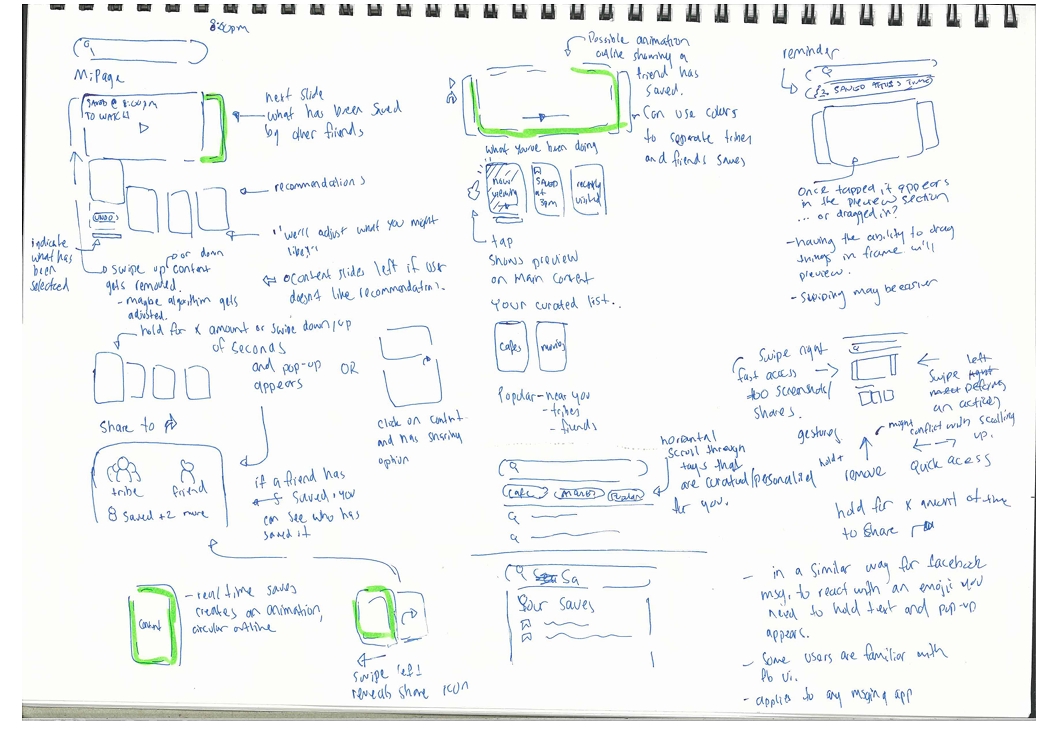 8:00pm
MiPage
SAVED @ 8:00PM
TO WATCH
next slide
what has been saved
by other friends
recommendations
UNDO
indicate
what has
been
selected
"we'll adjust what you might
like":
swipe up or down content
gets removed.
- maybe algorithm gets
adjusted.
content slides left if user
doesn't like recommendations.
hold for x amount or swipe down/up
of seconds
and pop-up
appears
OR
click on content
and has sharing
option
Share to
tribe
friend
8 saved +2 more
if a friend has
saved, you
can see who has
saved it
Content
- real time saves
creates an animation,
circular outline
swipe left
reveals share icon
Possible animation
outline showing a
friend has
saved.
- Can use colors
to separate tribes
and friends saves
what you've been doing
now
viewing
SAVED
at
3pm
recently
visited
tap
shows preview
on Main Content
Your curated list..
cafes
movies
Popular - near you
- tribes
- friends
horizontal
scroll through
tags that
are curated/personalized
for you.
cafe
Sa
Your Saves
reminder
Once tapped, it appears
in the preview section
... or dragged in?
- having the ability to drag
things in frame will
preview.
- swiping may be easier
Swipe right
fast access
too screenshots/
shares.
left
Swipe right
an activity
gestures
might
conflict with scrolling
up.
hold+
remove
Quick access
hold for x amount of time
to share
- in a similar way for facebook
msg, to react with an emoji you
need to hold text and pop-up
appears.
- Some users are familiar with
fb ui.
- applies to any msging app